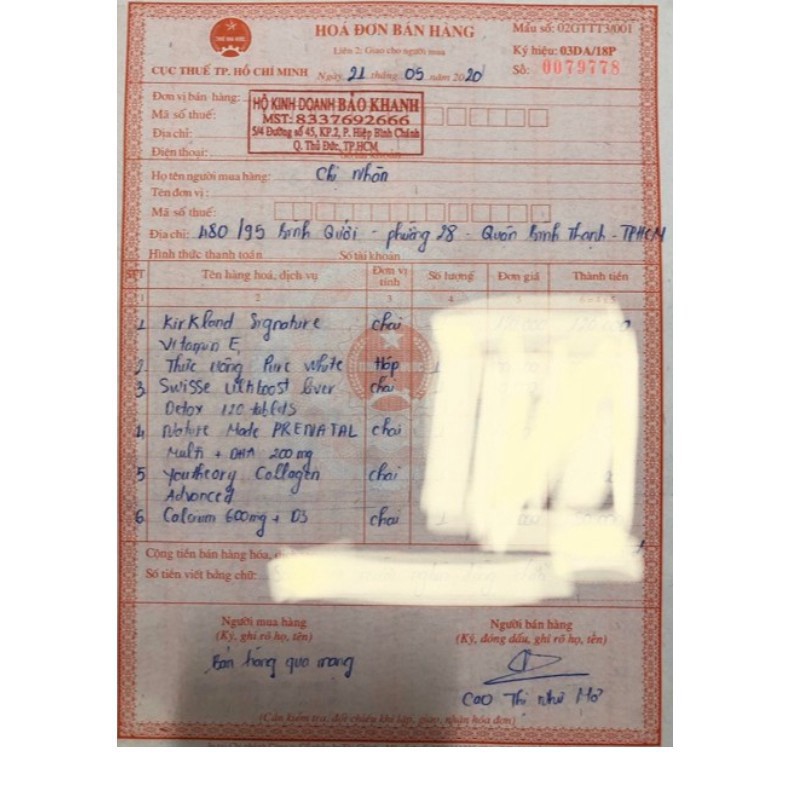 HOÁ ĐƠN BÁN HÀNG
Mẫu số: 02GTTT3/001
Liên 2: Giao cho người mua
Ký hiệu: 03DA/18P
CỤC THUẾ TP. HỒ CHÍ MINH
Ngày 21 tháng 05 năm 2020
Số: 0079778
Đơn vị bán hàng:
HỘ KINH DOANH BẢO KHANH
Mã số thuế:
MST: 8337692666
Địa chỉ:
5/4 Đường số 45, KP.2, P. Hiệp Bình Chánh
Q. Thủ Đức, TP.HCM
Điện thoại:
Họ tên người mua hàng: Chị Nhân
Tên đơn vị:
Mã số thuế:
Địa chỉ: 480/95 Bình Quới - phường 28 - Quận Bình Thạnh - TPHCM
Hình thức thanh toán Số tài khoản
STT Tên hàng hoá, dịch vụ Đơn vị tính Số lượng Đơn giá Thành tiền
1 2 3 4 5
1 Kirkland Signature chai
Vitamin E
2 Thức uống Pure White Hộp
3 Swisse Ultiboost liver chai
Detox 120 tablets
4 Nature Made PRENATAL chai
Multi + DHA 200 mg
5 Youtheory Collagen chai
Advanced
6 Calcium 600mg + D3 chai 1
Cộng tiền bán hàng hóa,
Số tiền viết bằng chữ:
Người mua hàng
(Ký, ghi rõ họ, tên)
Người bán hàng
(Ký, đóng dấu, ghi rõ họ, tên)
Bán hàng qua mạng
Cao Thị Như Mơ
(Cần kiểm tra, đối chiếu khi lập, giao, nhận hóa đơn)